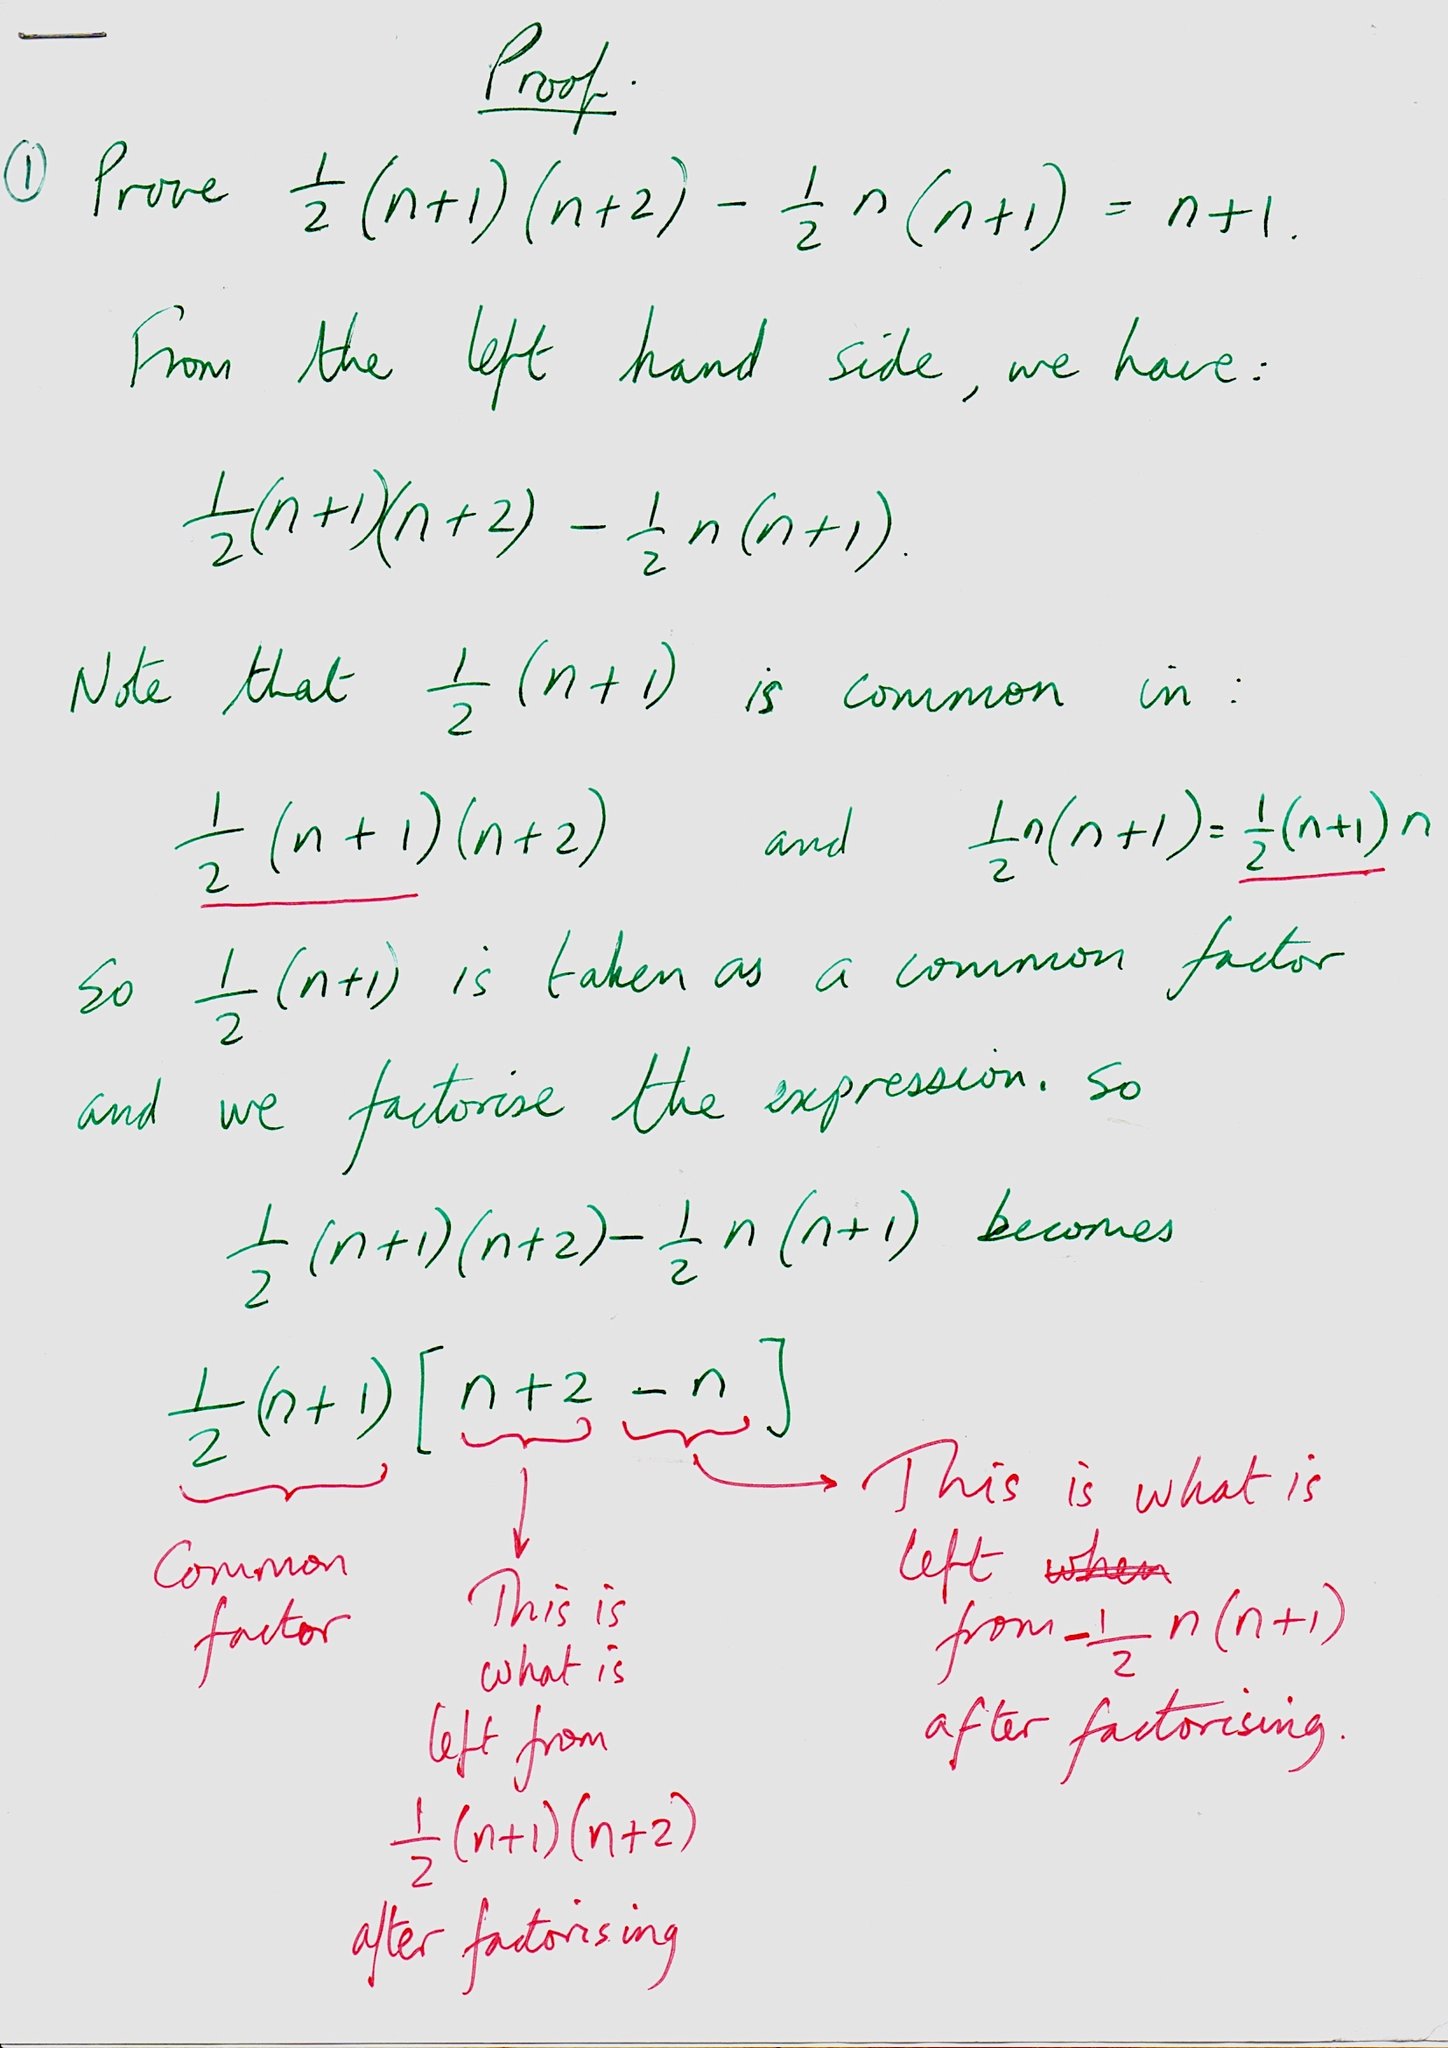 Proof.
① Prove 1/2 (n+1)(n+2) - 1/2 n(n+1) = n+1.
From the left hand side, we have:
1/2 (n+1)(n+2) - 1/2 n(n+1).
Note that 1/2 (n+1) is common in:
1/2 (n+1)(n+2) and 1/2 n(n+1) = 1/2 (n+1) n
So 1/2 (n+1) is taken as a common factor
and we factorise the expression. So
1/2 (n+1)(n+2) - 1/2 n(n+1) becomes
1/2 (n+1) [n+2 - n]
Common
factor
This is
what is
left from
1/2 (n+1)(n+2)
after factorising
This is what is
left when
from - 1/2 n(n+1)
after factorising.